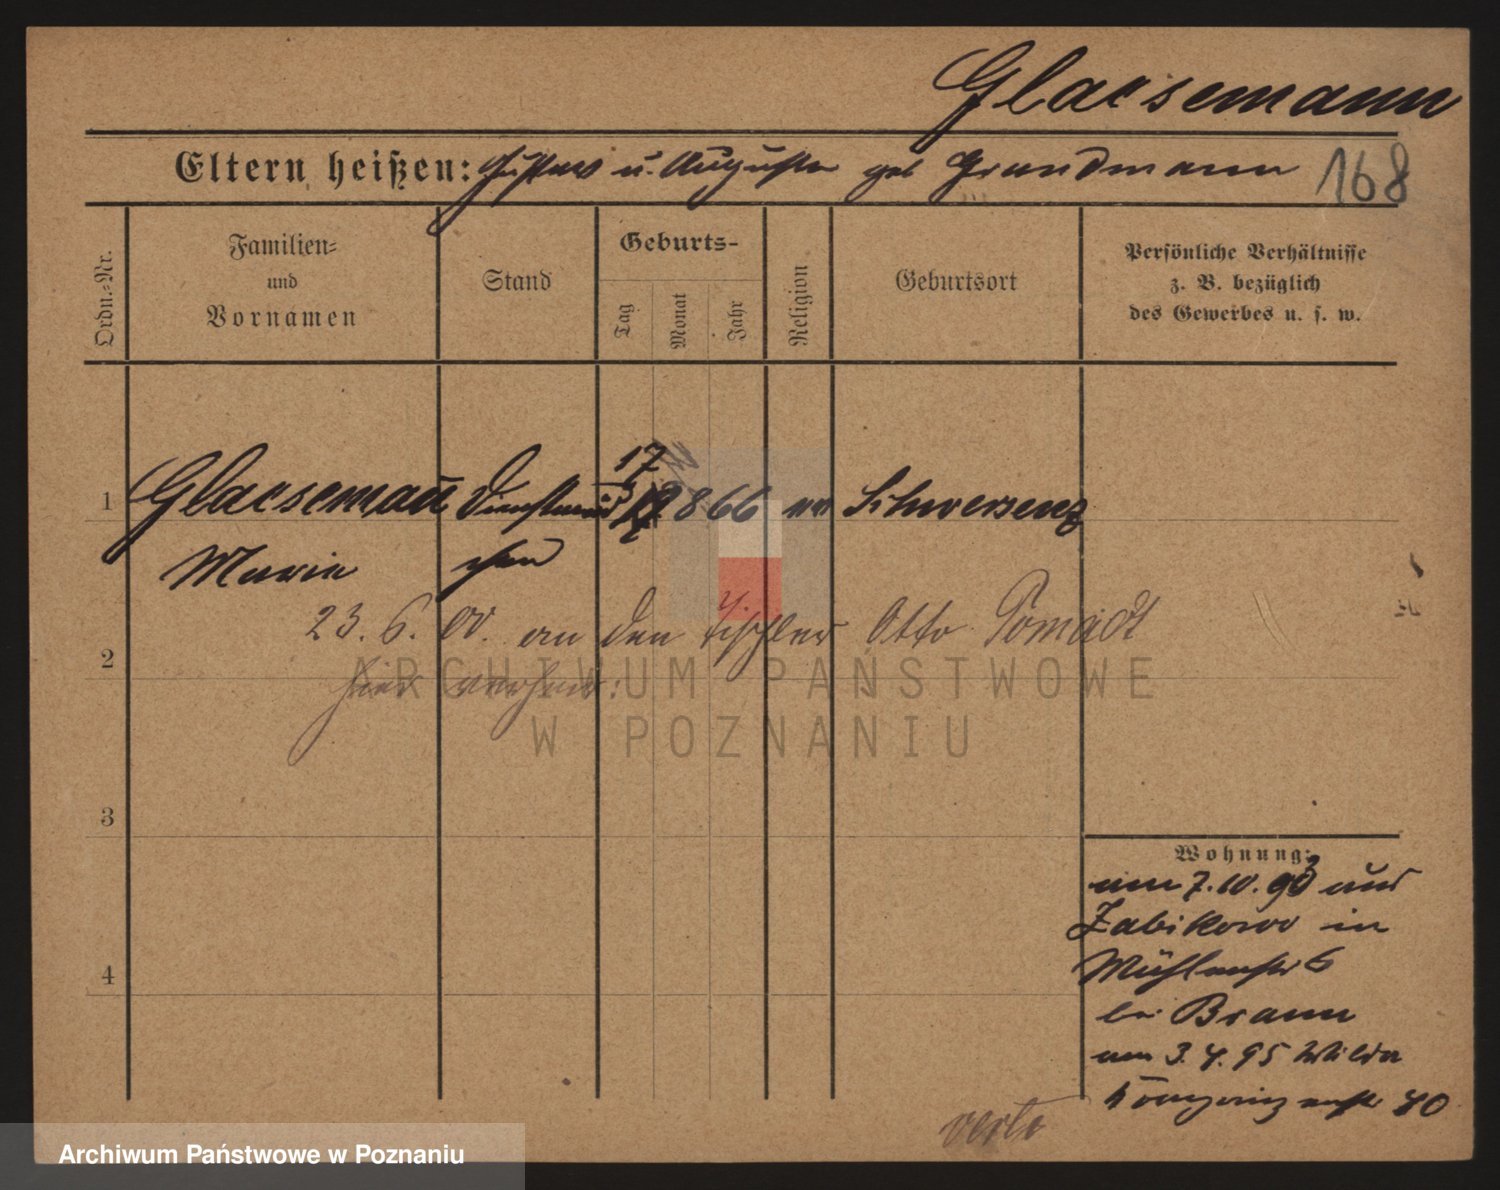 Glaesemann
Eltern heißen: Gustav u. Auguste geb Grundmann 168
Ordn.-Nr.
Familien-
und
Vornamen
Stand
Geburts-
Tag
Monat
Jahr
Religion
Geburtsort
Persönliche Verhältnisse
z. B. bezüglich
des Gewerbes u. s. w.
1 Glaesemañ Dienstmäd 17 866 ev Schwersenz
Marie chen
23. 6. 00. an den Tischler Otto Pomadt
2
hier verheir:
3
Wohnung:
am 7.10.93 aus
Zabikowo in
Mühlenstr 6
4
bei Braun
am 3.4.95 Wilda
Kronprinzenstr 40
verte
ARCHIWUM PAŃSTWOWE
W POZNANIU
Archiwum Państwowe w Poznaniu